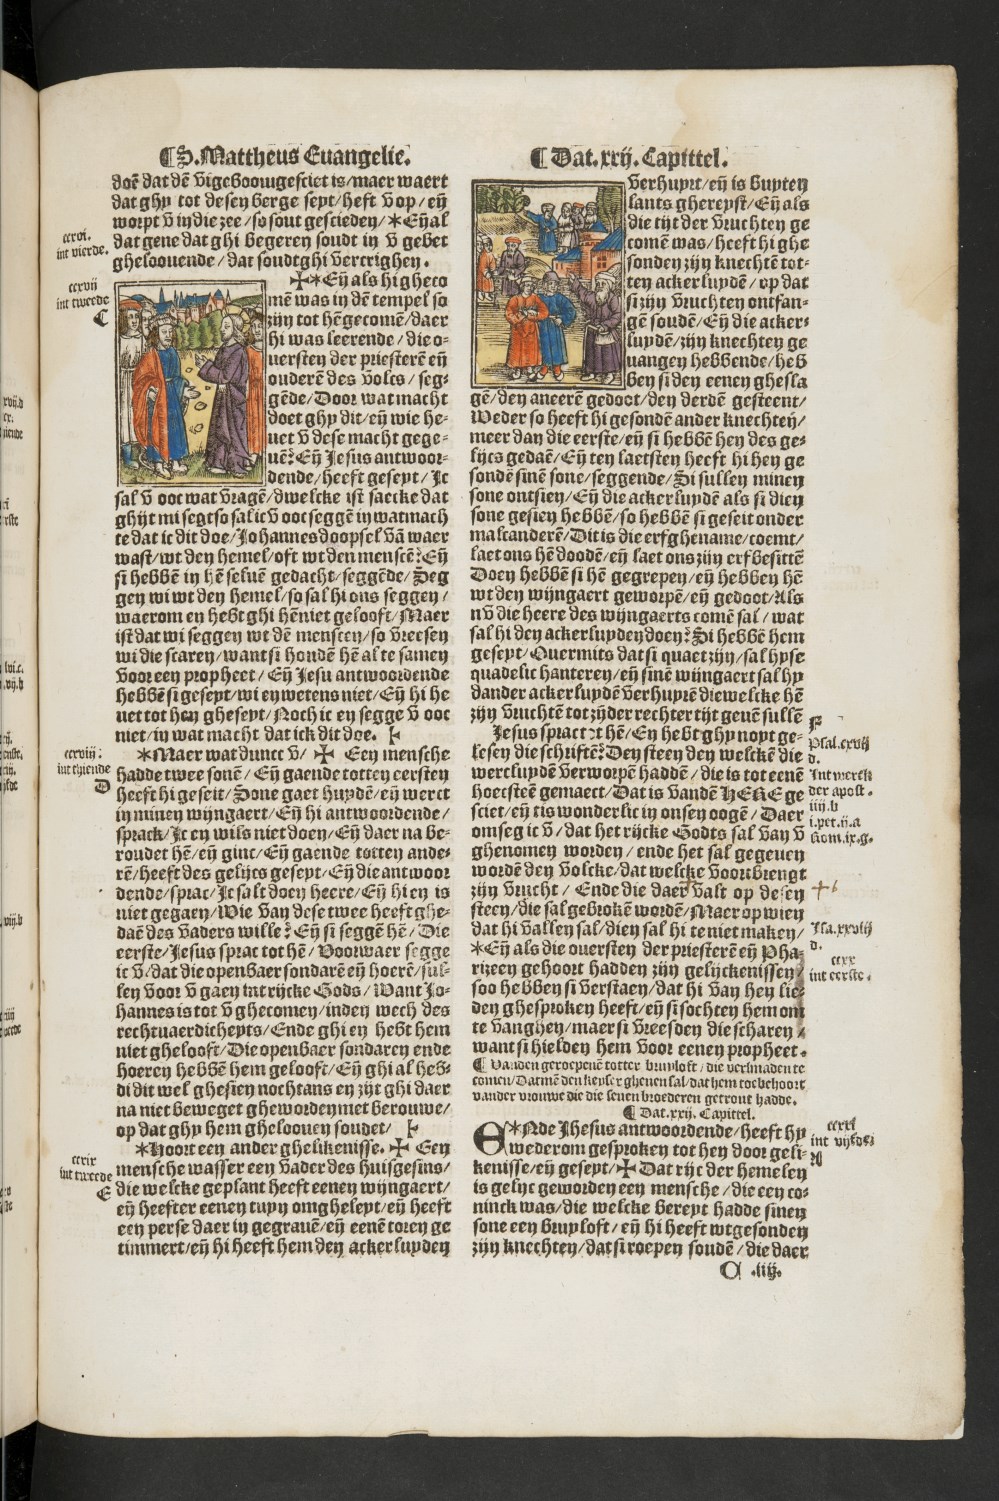 ¶ S. Mattheus Euangelie.
doē dat dē vigeboom gesciet is/maer waert
dat ghy tot desen berge seyt/heft v op/eñ
worpt v in die zee/so sout gescieden/*Eñ al
dat gene dat ghi begeren soudt in v gebet
gheloouende/dat soudt ghi vercrighen.
✠*Eñ als hi gheco
mē was in dē tempel so
zijn tot hē gecomē/daer
hi was leerende/die o-
uersten der priesterē eñ
ouderē des volcs/seg-
gēde/Door wat macht
doet ghy dit/eñ wie he-
uet v dese macht gege-
uē? Eñ Jesus antwoor-
dende/heeft geseyt/Jc
sal v ooc wat vragē/dwelcke ist saecke dat
ghijt mi segt so sal ic v ooc seggē in wat mach
te dat ic dit doe/Johannes doopsel vā waer
wast/wt den hemel/oft wt den menscē? Eñ
si hebbē in hē seluē gedacht/seggēde/Seg
gen wi wt den hemel/so sal hi ons seggen/
waerom en hebt ghi hē niet gelooft/Maer
ist dat wi seggen wt dē menscen/so vreesen
wi die scaren/want si houdē hē al te samen
voor een propheet/Eñ Jesu antwoordende
hebbē si geseyt/wi en wetens niet/Eñ hi he
uet tot hen gheseyt/Noch ic en segge v ooc
niet/in wat macht dat ick dit doe.
*Maer wat dunct v/✠ Een mensche
hadde twee sonē/Eñ gaende totten eersten
heeft hi geseit/Sone gaet huydē/eñ werct
in minen wijngaert/Eñ hi antwoordende/
sprack/Jc en wils niet doen/Eñ daer na be-
roudet hē/eñ ginc/Eñ gaende totten ande-
rē/heeft des gelijcs geseyt/Eñ die antwoor
dende/sprac/Jc salt doen heere/Eñ hi en is
niet gegaen/Wie van dese twee heeft ghe-
daē des vaders wille? Eñ si seggē hē/Die
eerste/Jesus sprac tot hē/Voorwaer segge
ic v/dat die openbaer sondarē eñ hoerē/sul-
len voor v gaen int rijcke Gods/Want Jo-
hannes is tot v ghecomen/inden wech des
rechtuaerdicheyts/Ende ghi en hebt hem
niet ghelooft/Die openbaer sondaren ende
hoeren hebbē hem gelooft/Eñ ghi al heb-
di dit wel ghesien nochtans en zijt ghi daer
na niet beweget gheworden met berouwe/
op dat ghy hem gheloouen soudet/
*Hoort een ander ghelikenisse.✠ Een
mensche wasser een vader des huisgesins/
die welcke geplant heeft eenen wijngaert/
eñ heefter eenen tuyn omgheleyt/eñ heeft
een perse daer in gegrauē/eñ eenē toren ge
timmert/eñ hi heeft hem den ackerluyden
ccxvi.
int vierde.
ccxvij
int tweede
C
ccxviij:
int thiende
D
ccxix
int tweede
E
¶ Dat.xxij.Capittel.
verhuyrt/eñ is buyten
lants ghereyst/Eñ als
die tijt der vruchten ge
comē was/heeft hi ghe
sonden zijn knechtē tot-
ten ackerluydē/op dat
si zijn vruchten ontfan-
gē soudē/Eñ die acker-
luydē/zijn knechten ge
uangen hebbende/heb
ben si den eenen ghesla
gē/den anderē gedoot/den derdē gesteent/
Weder so heeft hi gesondē ander knechten/
meer dan die eerste/eñ si hebbē hen des ge-
lijcs gedaē/Eñ ten laetsten heeft hi hen ge
sondē sinē sone/seggende/Si sullen minen
sone ontsien/Eñ die ackerluydē als si dien
sone gesien hebbē/so hebbē si geseit onder
malcanderē/Dit is die erfghename/coemt/
laet ons hē doodē/eñ laet ons zijn erf besittē
Doen hebbē si hē gegrepen/eñ hebben hē
wt den wijngaert geworpē/eñ gedoot/Als
nv die heere des wijngaerts comē sal/wat
sal hi den ackerluyden doen? Si hebbē hem
geseyt/Ouermits dat si quaet zijn/sal hyse
quadelic hanteren/eñ sinē wijngaert sal hy
dander ackerluydē verhuyrē die welcke hē
zijn vruchtē tot zijder rechter tijt geuē sullē
Jesus spract: t hē/En hebt ghy noyt ge-
lesen die schriftē? Den steen den welckē die
wercluydē verworpē haddē/die is tot eenē
hoecsteē gemaect/Dat is vandē HERE ge
sciet/eñ tis wonderlic in onsen oogē/Daer
om seg ic v/dat het rijcke Godts sal van v
ghenomen worden/ende het sal gegeuen
wordē den volcke/dat welcke voortbrengt
zijn vrucht/Ende die daer valt op desen
steen/die sal gebrokē wordē/Maer op wien
dat hi vallen sal/dien sal hi te niet maken/
*Eñ als die ouersten der priesterē eñ Pha-
rizeen gehoort hadden zijn gelijckenissen/
soo hebben si verstaen/dat hi van hen lie-
den ghesproken heeft/eñ si sochten hem om
te vanghen/maer si vreesden die scharen/
want si hielden hem voor eenen propheet.
¶ Vanden geroepenē totter bruyloft/die versmaden te
comen/Datmē den keyser gheuen sal/dat hem toebehoort
vander vrouwe die die seuen broederen getrout hadde.
¶ Dat.xxij. Capittel.
E*Nde Jhesus antwoordende/heeft hy
wederom gesproken tot hen door geli-
kenisse/eñ geseyt/✠ Dat rijc der hemelen
is gelijc geworden een mensche/die een co-
ninck was/die welcke bereyt hadde sinen
sone een bruyloft/eñ hi heeft wtgesonden
zijn knechten/dat si roepen soudē/die daer
F
Psal.cxvij
d.
Int werck
der apost.
iiij.b
i.pet.ij.a
Rom.ix.g.
Isa.xxviij
d.
ccxx
int eerste.
ccxxi
int vijfde:
A
C .iij.